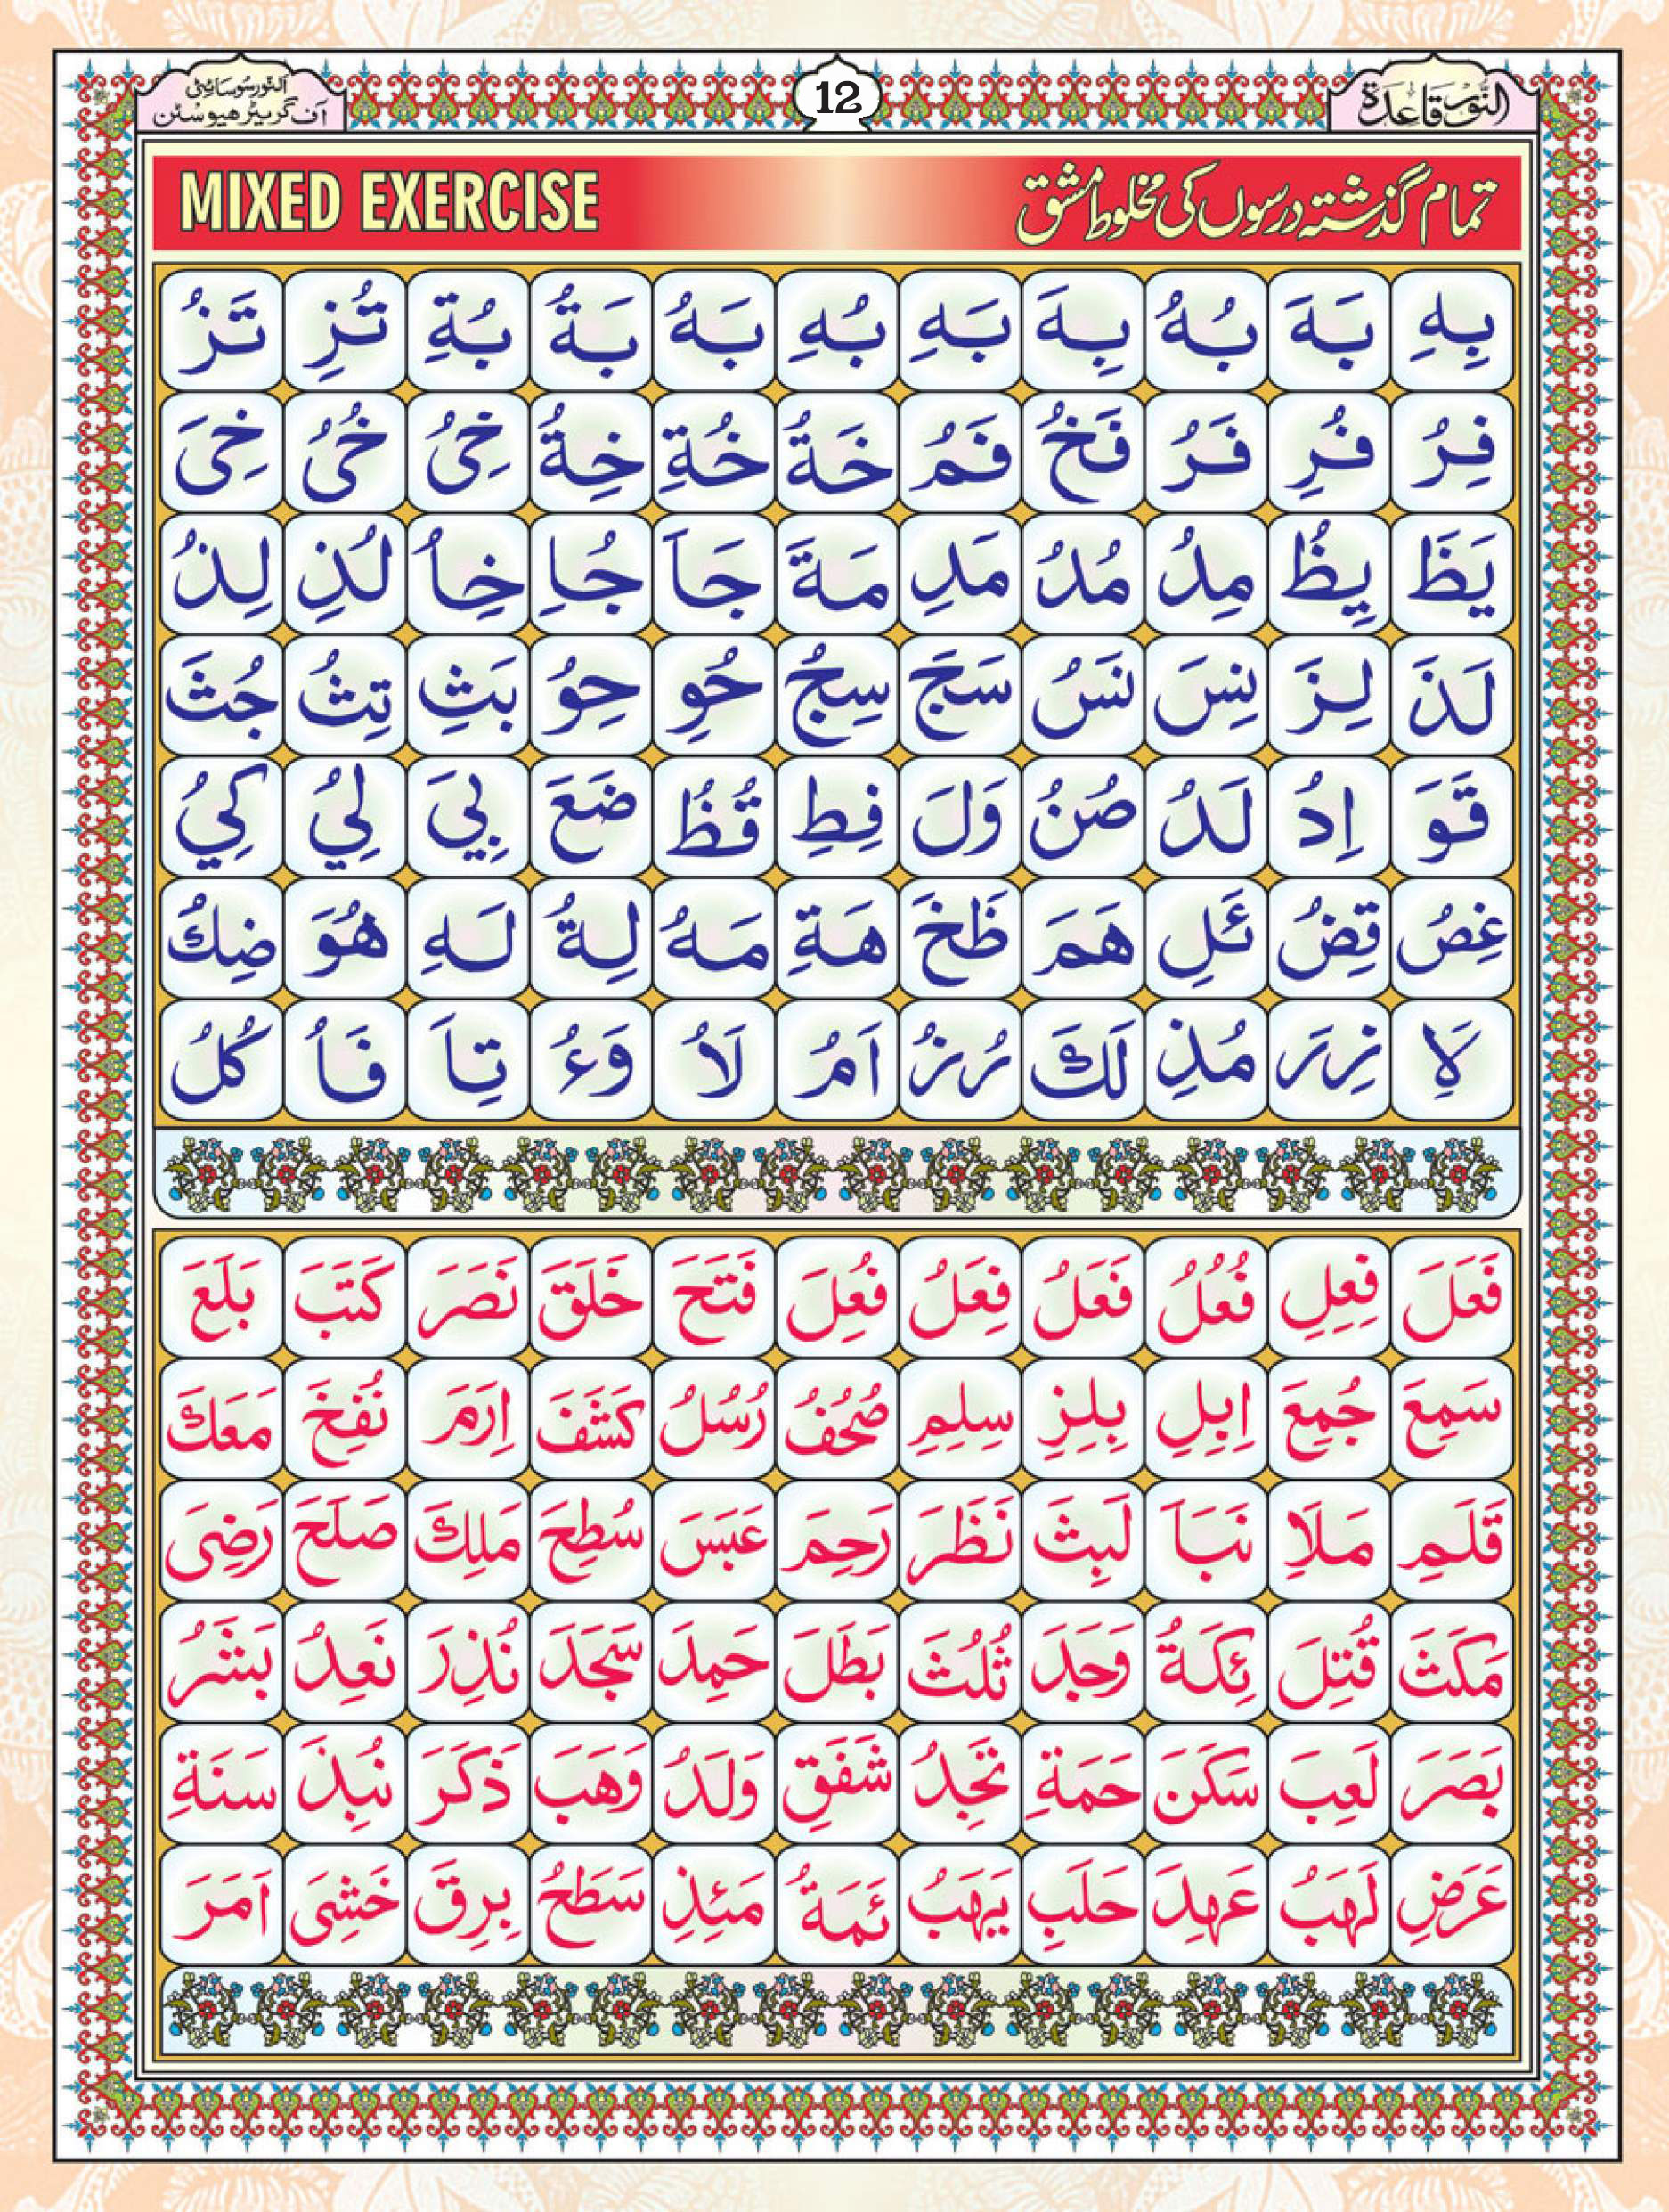 النُّور قَاعِدَة
12
اَلنّور سُوسَائِٹی
آف گریٹر ھیوسٹن
تمام گذشتہ درسوں کی مخلوط مشق
MIXED EXERCISE
بِهِ بَهَ بُهُ بِهَ بَهِ بُهِ بَهُ بَةُ بُةِ تُزِ تَزُ
فِرُ فُرِ فَرُ فَخُ فَمُ خَةُ خُةِ خِةُ خِیُ خُیُ خِیَ
يَظَ يِظُ مِدُ مُدُ مَدِ مَةَ جَاَ جُاِ خِاُ لُذِ لِذُ
لَذَ لِزَ نِسَ نَسُ سَجَ سِجُ حُوِ حِوُ بَثِ تِثُ جُثَ
قَوَ اِدُ لَدُ صُنُ وَلَ فِطِ قُظُ ضَعَ بِيَ لِيُ كِيُ
غِصُ قِضُ ئَلِ هَمَ ظَخَ هَةِ مَهُ لِةُ لَهِ هُوَ ضِكُ
لَاِ نِرَ مُذِ لَكَ رُزُ اَمُ لَاُ وَءُ تِاَ فَاُ كُلُ
فَعَلَ فِعِلِ فُعُلُ فَعَلُ فِعَلُ فُعِلَ فَتَحَ خَلَقَ نَصَرَ كَتَبَ بَلَعَ
سَمِعَ جُمِعَ اِبِلِ بِلِزِ سِلِمِ صُحُفُ رُسُلُ كَشَفَ اِرَمَ نُفِخَ مَعَكَ
قَلَمِ مَلَاِ نَبَاَ لَبِثَ نَظَرَ رَحِمَ عَبَسَ سُطِحَ مَلِكِ صَلَحَ رَضِیَ
مَكَثَ قُتِلَ ئِكَةُ وَجَدَ ثُلُثَ بَطَلَ حَمِدَ سَجَدَ نُذِرَ نَعِدُ بَشَرُ
بَصَرَ لَعِبَ سَكَنَ حَمَةِ تَجِدُ شَفَقِ وَلَدُ وَهَبَ ذَكَرَ نُبِذَ سَنَةِ
عَرَضِ لَهَبُ عَهِدَ حَلَبِ يَهَبُ ئَمَةُ مَئِذِ سَطَحُ بِرِقَ خَشِیَ اَمَرَ